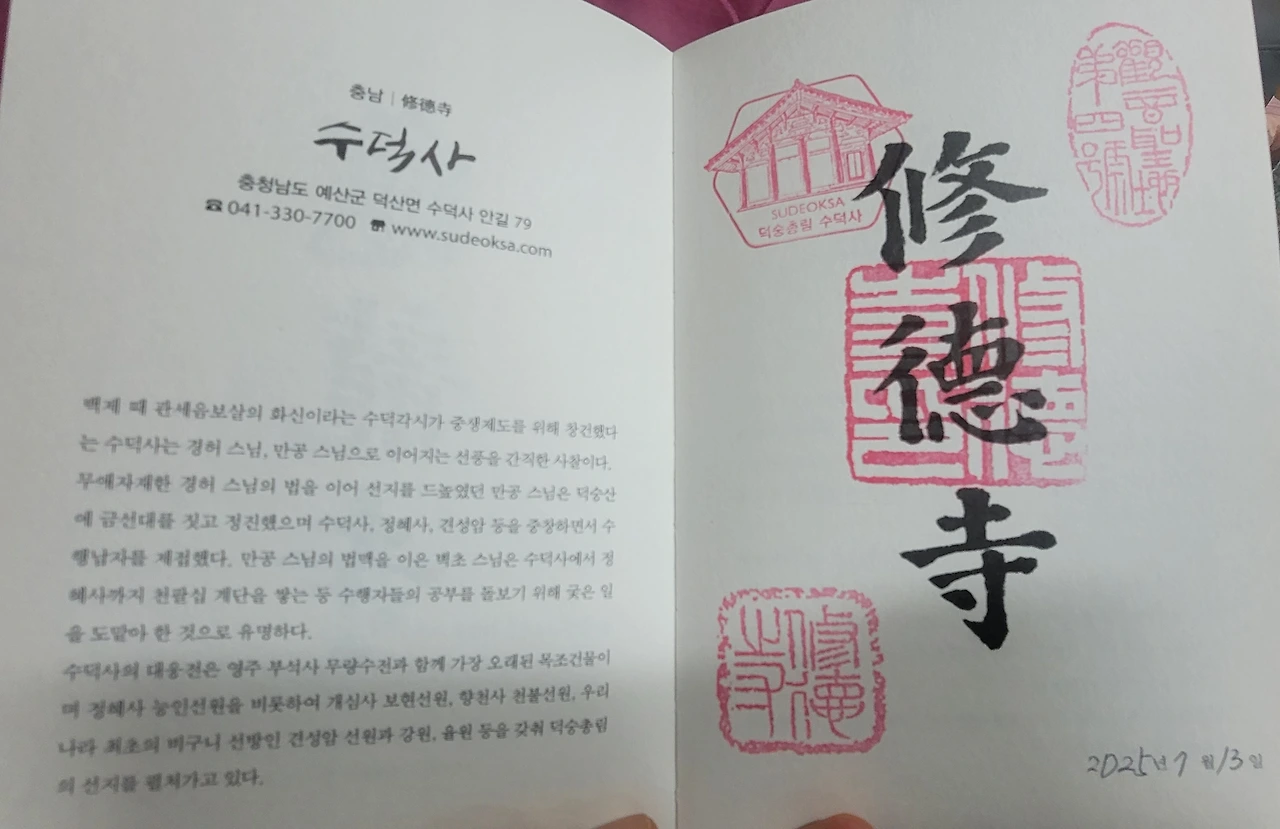 충남 | 修德寺
수덕사
충청남도 예산군 덕산면 수덕사 안길 79
☎ 041-330-7700 www.sudeoksa.com
백제 때 관세음보살의 화신이라는 수덕각시가 중생제도를 위해 창건했다
는 수덕사는 경허 스님, 만공 스님으로 이어지는 선풍을 간직한 사찰이다.
무애자재한 경허 스님의 법을 이어 선지를 드높였던 만공 스님은 덕숭산
에 금선대를 짓고 정진했으며 수덕사, 정혜사, 견성암 등을 중창하면서 수
행납자를 제접했다. 만공 스님의 법맥을 이은 벽초 스님은 수덕사에서 정
혜사까지 천팔십 계단을 쌓는 등 수행자들의 공부를 돌보기 위해 궂은 일
을 도맡아 한 것으로 유명하다.
수덕사의 대웅전은 영주 부석사 무량수전과 함께 가장 오래된 목조건물이
며 정혜사 능인선원을 비롯하여 개심사 보현선원, 향천사 천불선원, 우리
나라 최초의 비구니 선방인 견성암 선원과 강원, 율원 등을 갖춰 덕숭총림
의 선지를 펼쳐가고 있다.
SUDEOKSA
덕숭총림 수덕사
觀音聖地
第四號
修
德
寺
修德
寺
2025년 7월 13일